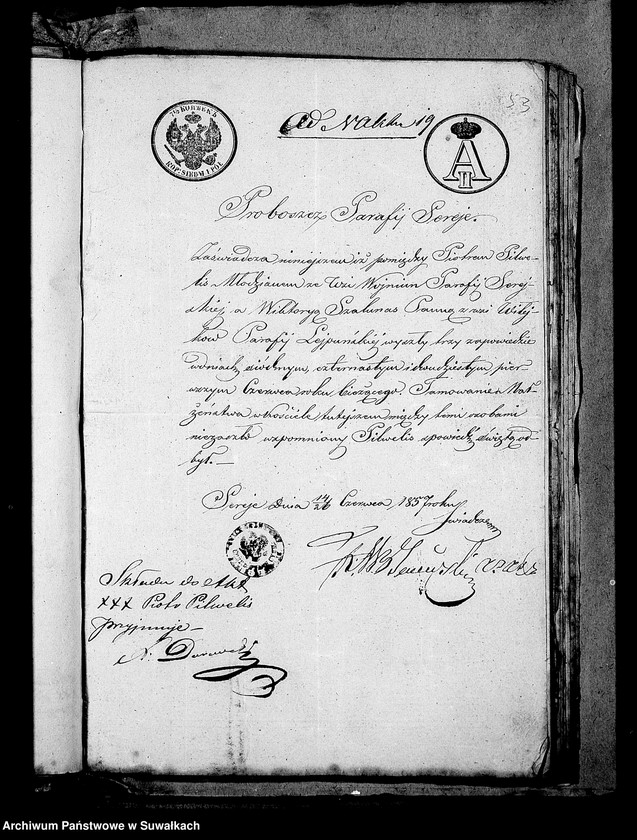 53
Ad N Aktu 19
7½ КОПѢЕКЪ
KOP. SIEDM I PÓŁ
A II
Proboszcz Parafij Sereje.
Zaświadcza niniejszem iż pomiędzy Piotrem Pilwe-
lis Młodzianem ze Wsi Wojniun Parafij Serej-
skiej a Wiktoryą Szalunas Panną z wsi Wiłij-
ków Parafij Lejpuńskiej wyszły trzy zapowiedzie
w dniach siódmym, czternastym i dwudziestym pier-
wszym Czerwca roku bieżącego. Tamowanie Mał-
żeństwa w kościele tutejszem między temi osobami
niezaszło wzpomniony Pilwelis spowiedź świętą od-
był. —
Sereje dnia 14/26 Czerwca 1857 roku
świadczem
Składa do Akt
XXX Piotr Pilwelis
przyjmuje —
Archiwum Państwowe w Suwałkach